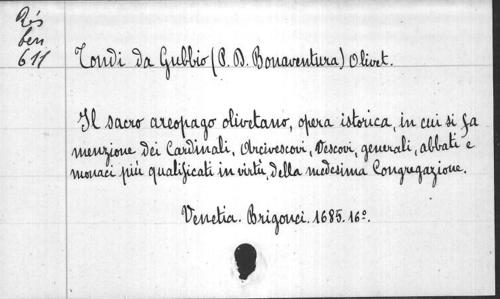 Rés
ben
611
Tondi da Gubbio (P. D. Bonaventura) Olivet.
Il sacro areopago olivetano, opera istorica, in cui si fa
menzione dei Cardinali, Arcivescovi, Vescovi, generali, abbati e
monaci più qualificati in virtù, della medesima Congregazione.
Venetia. Brigonci. 1685. 16º.